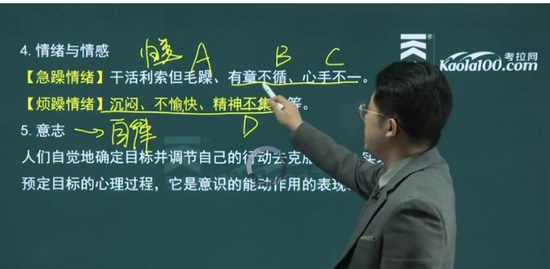 4. 情绪与情感
归类 A B C
【急躁情绪】干活利索但毛躁、有章不循、心手不一。
【烦躁情绪】沉闷、不愉快、精神不集 等。
D
5. 意志 → 自律
人们自觉地确定目标并调节自己的行动去克
预定目标的心理过程，它是意识的能动作用的表现
考拉网
Kaola100.com